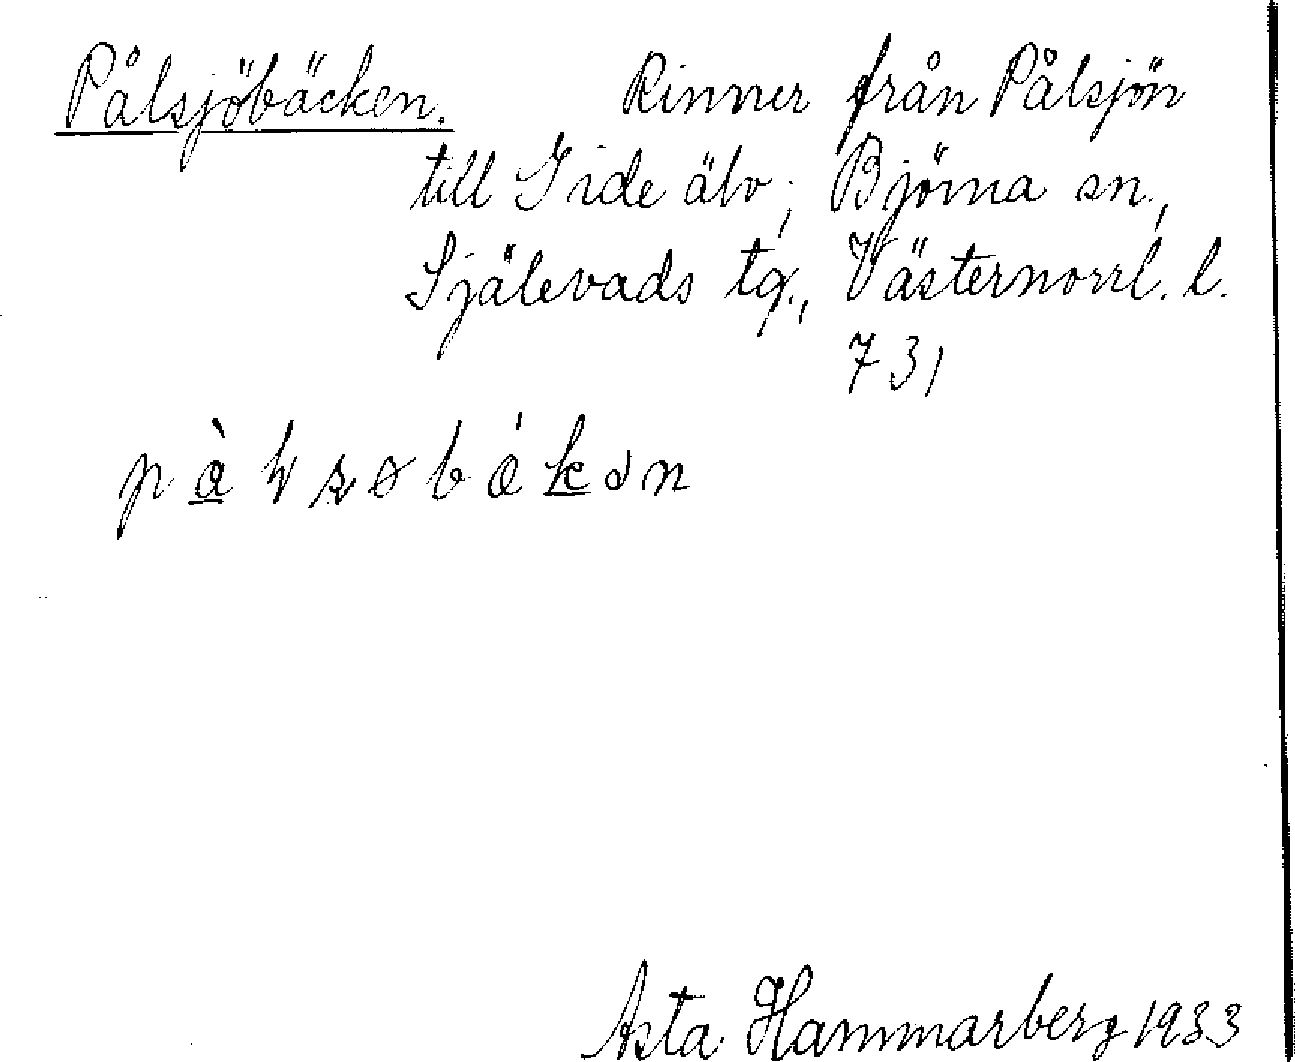 Pålsjöbäcken. Rinner från Pålsjön
till Gide älv, Björna sn,
Själevads tg., Västernorrl. l.
731
Asta Hammarberg 1933